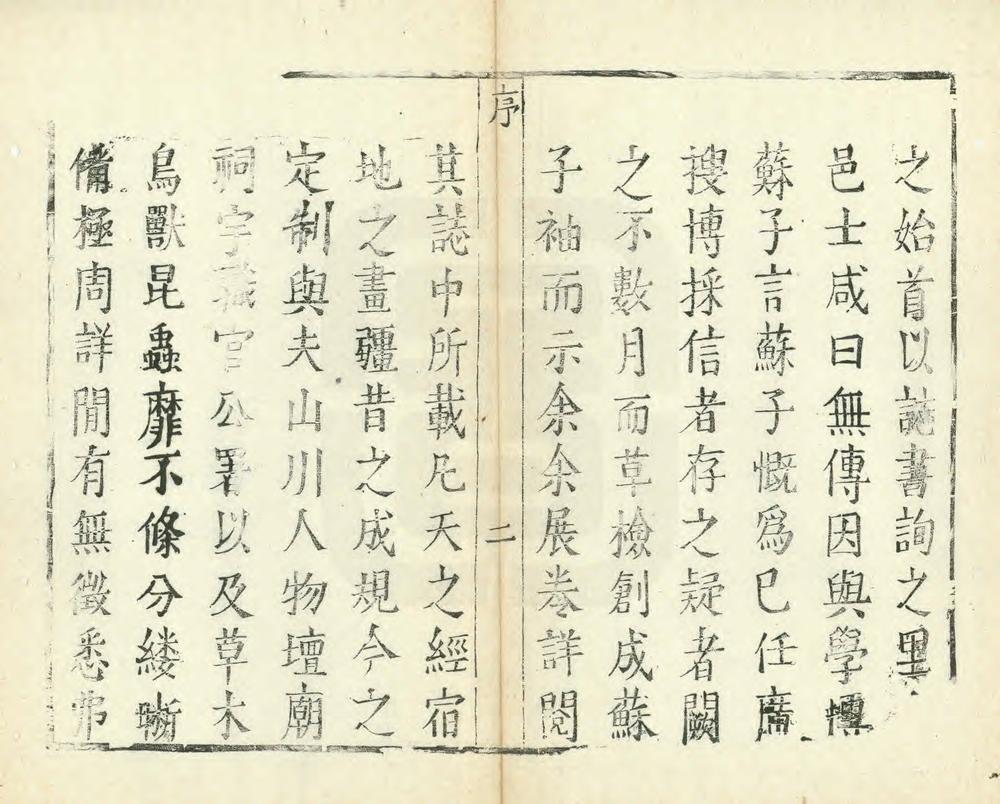 之始首以誌書詢之里
邑士咸曰無傳因與學博
蘇子言蘇子慨為巳任廣
搜博採信者存之疑者闕
之不數月而草檢創成蘇
子袖而示余余展卷詳閱
序
二
其誌中所載凡天之經宿
地之畫疆昔之成規今之
定制與夫山川人物壇廟
祠宇職官公署以及草木
鳥獸昆蟲靡不條分縷晰
備極周詳間有無徵悉弗